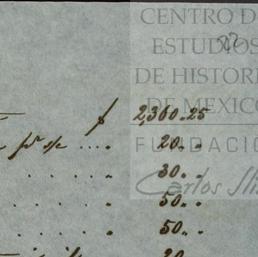 CENTRO D
ESTUDIOS
DE HISTORI
DE MEXICO
FUNDACIÓ
Carlos Sli
22
$ 2,360.25
20..
.... 30..
.... 50..
.... 50..
20